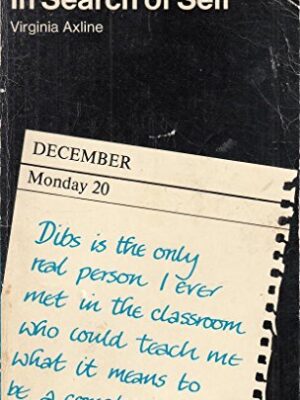 In Search of Self
Virginia Axline
DECEMBER
Monday 20
Dibs is the only
real person I ever
met in the classroom
who could teach me
what it means to
be a